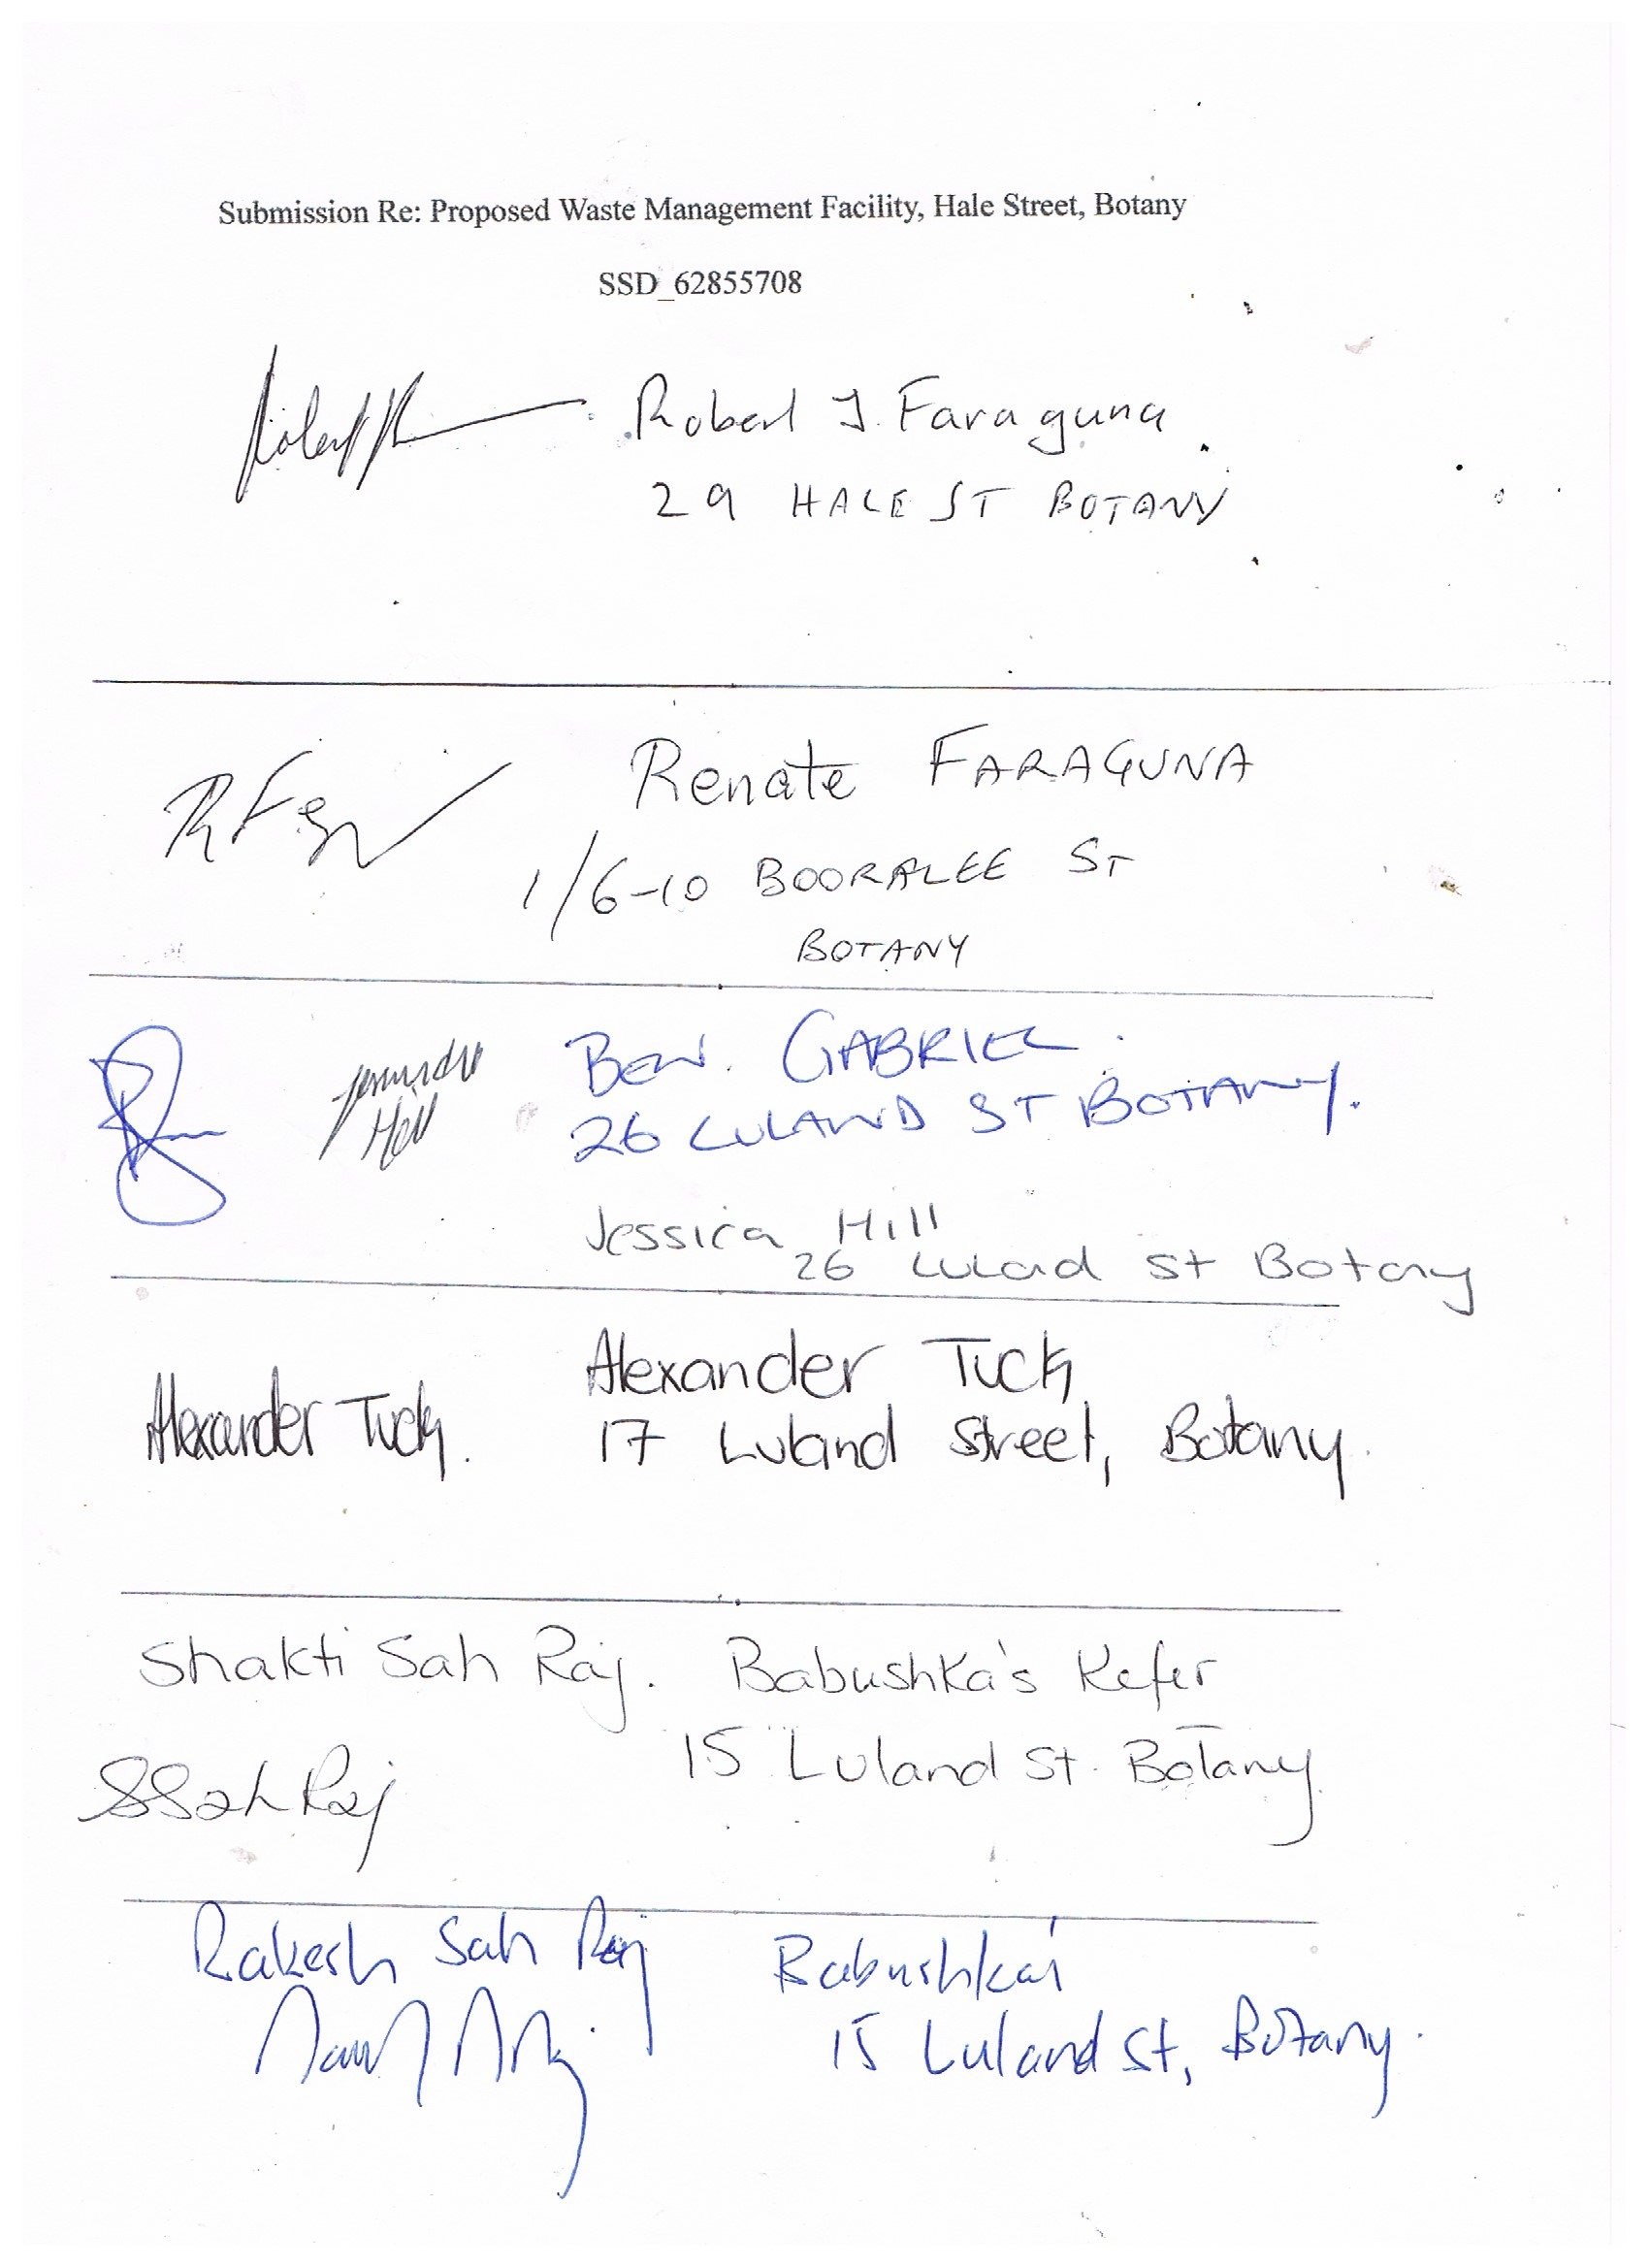 Submission Re: Proposed Waste Management Facility, Hale Street, Botany
SSD_62855708
Robert J. Faraguna
29 HALE ST BOTANY
Renate FARAGUNA
1/6-10 BOORALEE ST
BOTANY
BEN. GABRIEL.
26 LULAND ST BOTANY.
Hill
Jessica Hill
26 Lulad St Botany
Alexander Tuck
Alexander Tuck.
17 Luland Street, Botany.
Shakti Sah Raj. Babushka's Kefir
15 Luland St. Botany
SSah Raj
Rakesh Sah Raj Babushka's
15 Luland St, Botany.